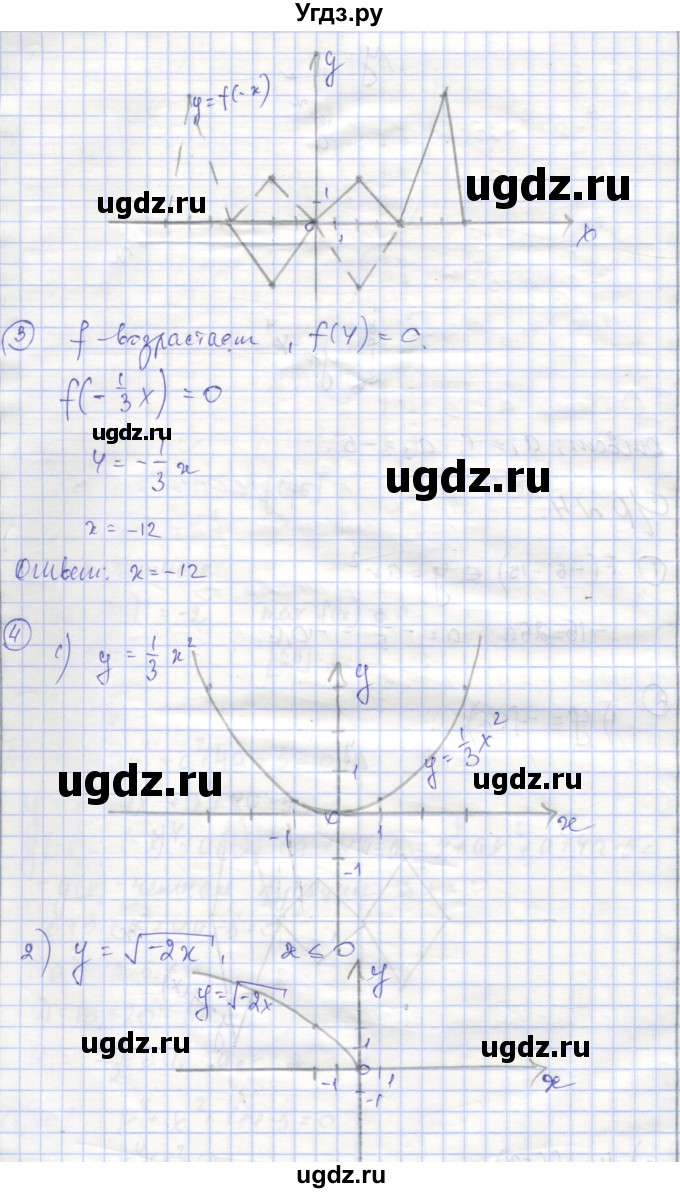 Угдз.ру
y
y = f(-x)
ugdz.ru
ugdz.ru
1
0
1
x
3 f - возрастает, f(4) = 0.
f(-1/3 x) = 0
ugdz.ru
4 = -1/3 x
ugdz.ru
x = -12
Ответ: x = -12
4
1) y = 1/3 x²
y
y = 1/3 x²
ugdz.ru
1
ugdz.ru
0
-1
1
x
-1
2) y = √-2x, x ≤ 0
y
y = √-2x
ugdz.ru
1
ugdz.ru
0
-1
1
x
-1
ugdz.ru